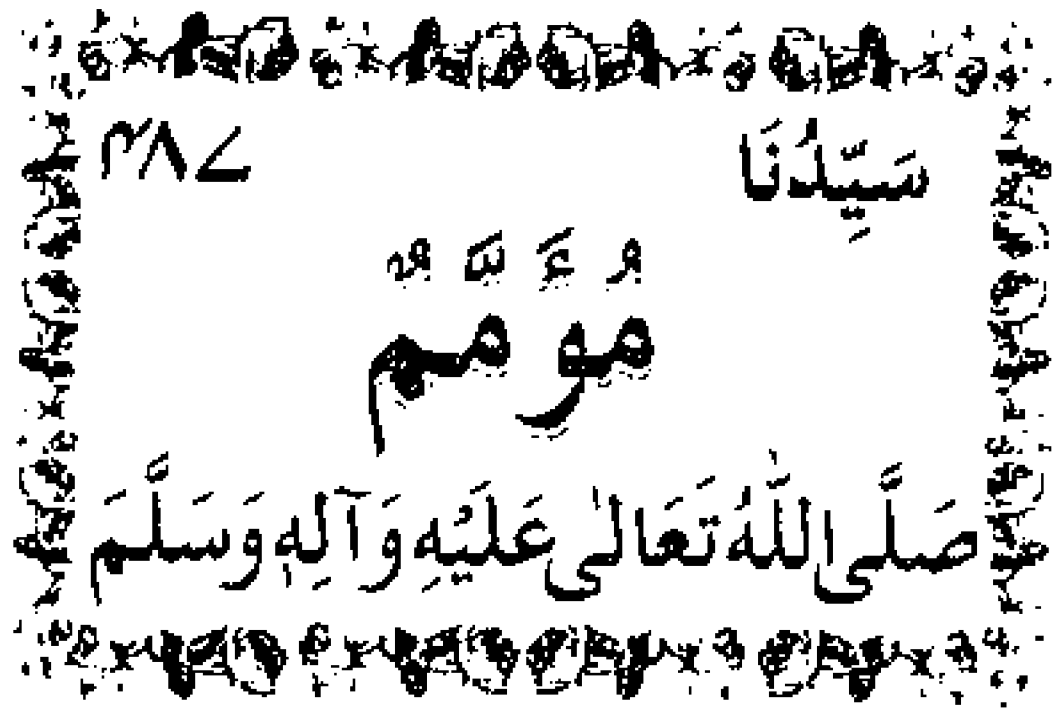 سَيِّدُنَا ۳۸۷
مُؤَمَّمٌ
صَلَّی اللّٰهُ تَعَالٰی عَلَيْهِ وَآلِهٖ وَسَلَّمَ